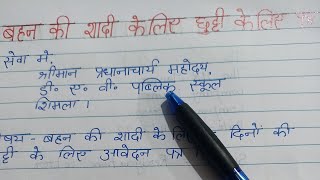 बहन की शादी के लिए छुट्टी के लिए
सेवा में,
श्रीमान प्रधानाचार्य महोदय,
डी. ए. वी. पब्लिक स्कूल
शिमला ।
षय - बहन की शादी के दिनों की
ट्टी के लिए आवेदन पत्र